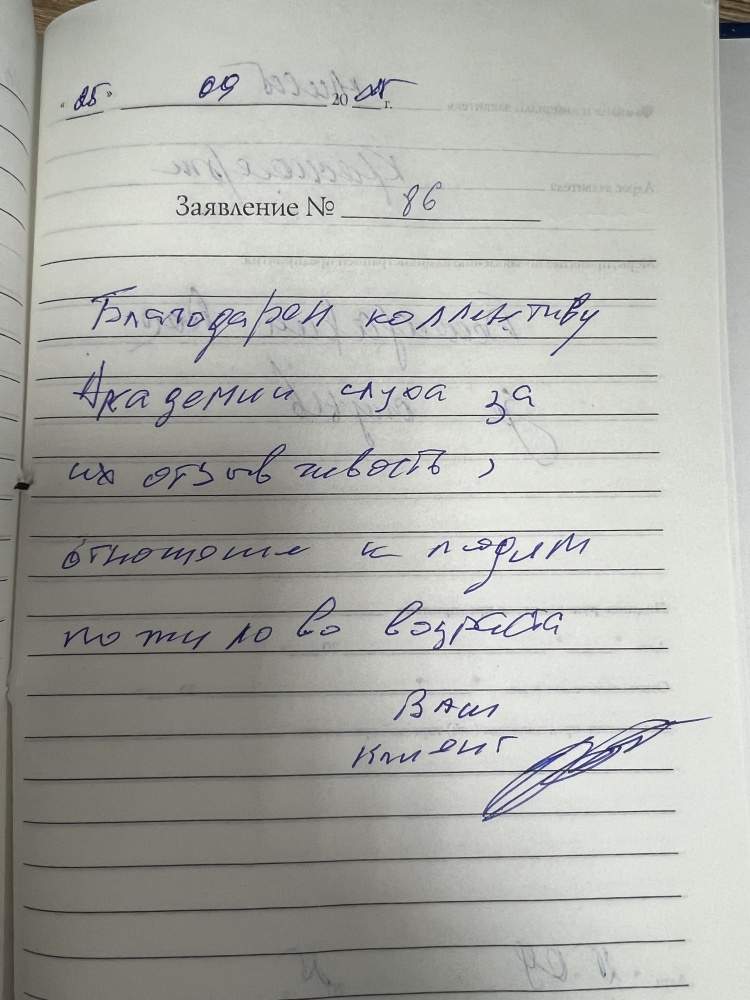 "25" 09 20 25 г.
Заявление № 86
Благодарен коллективу
Академии слуха за
их отзывчивость,
отношение к людям
пожилово возраста
Ваш
клиент